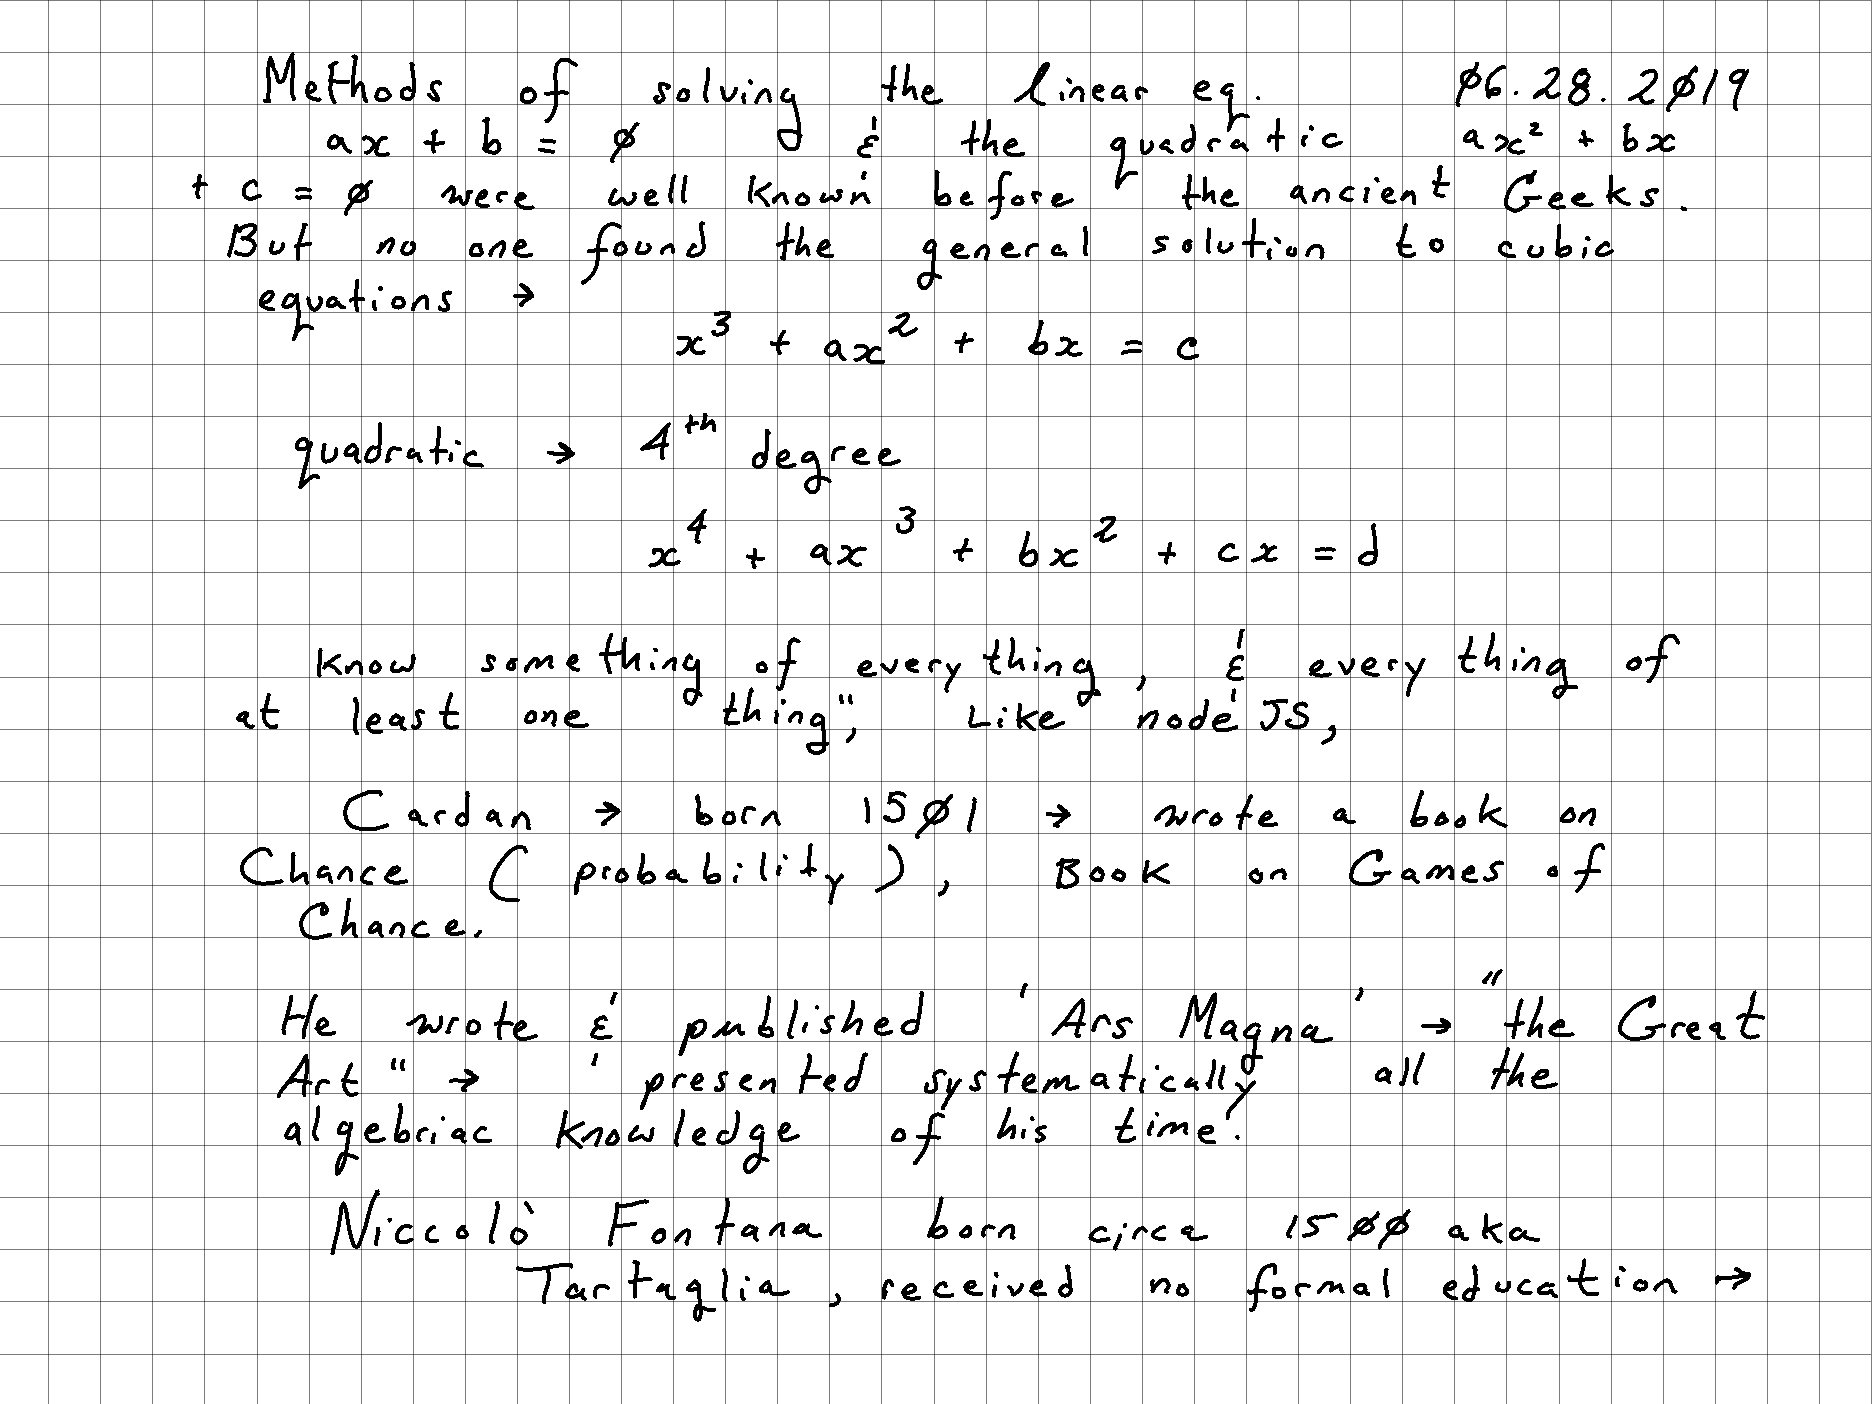 Methods of solving the linear eq. 06.28.2019
ax + b = 0 & the quadratic ax² + bx
+ c = 0 were well known before the ancient Geeks.
But no one found the general solution to cubic
equations →
x³ + ax² + bx = c
quadratic → 4th degree
x⁴ + ax³ + bx² + cx = d
know something of everything, & every thing of
at least one thing", Like node JS,
Cardan → born 1501 → wrote a book on
Chance (probability), Book on Games of
Chance.
He wrote & published 'Ars Magna' → "the Great
Art" → 'presented systematically all the
algebriac knowledge of his time'.
Niccolò Fontana born circa 1500 aka
Tartaglia, received no formal education →